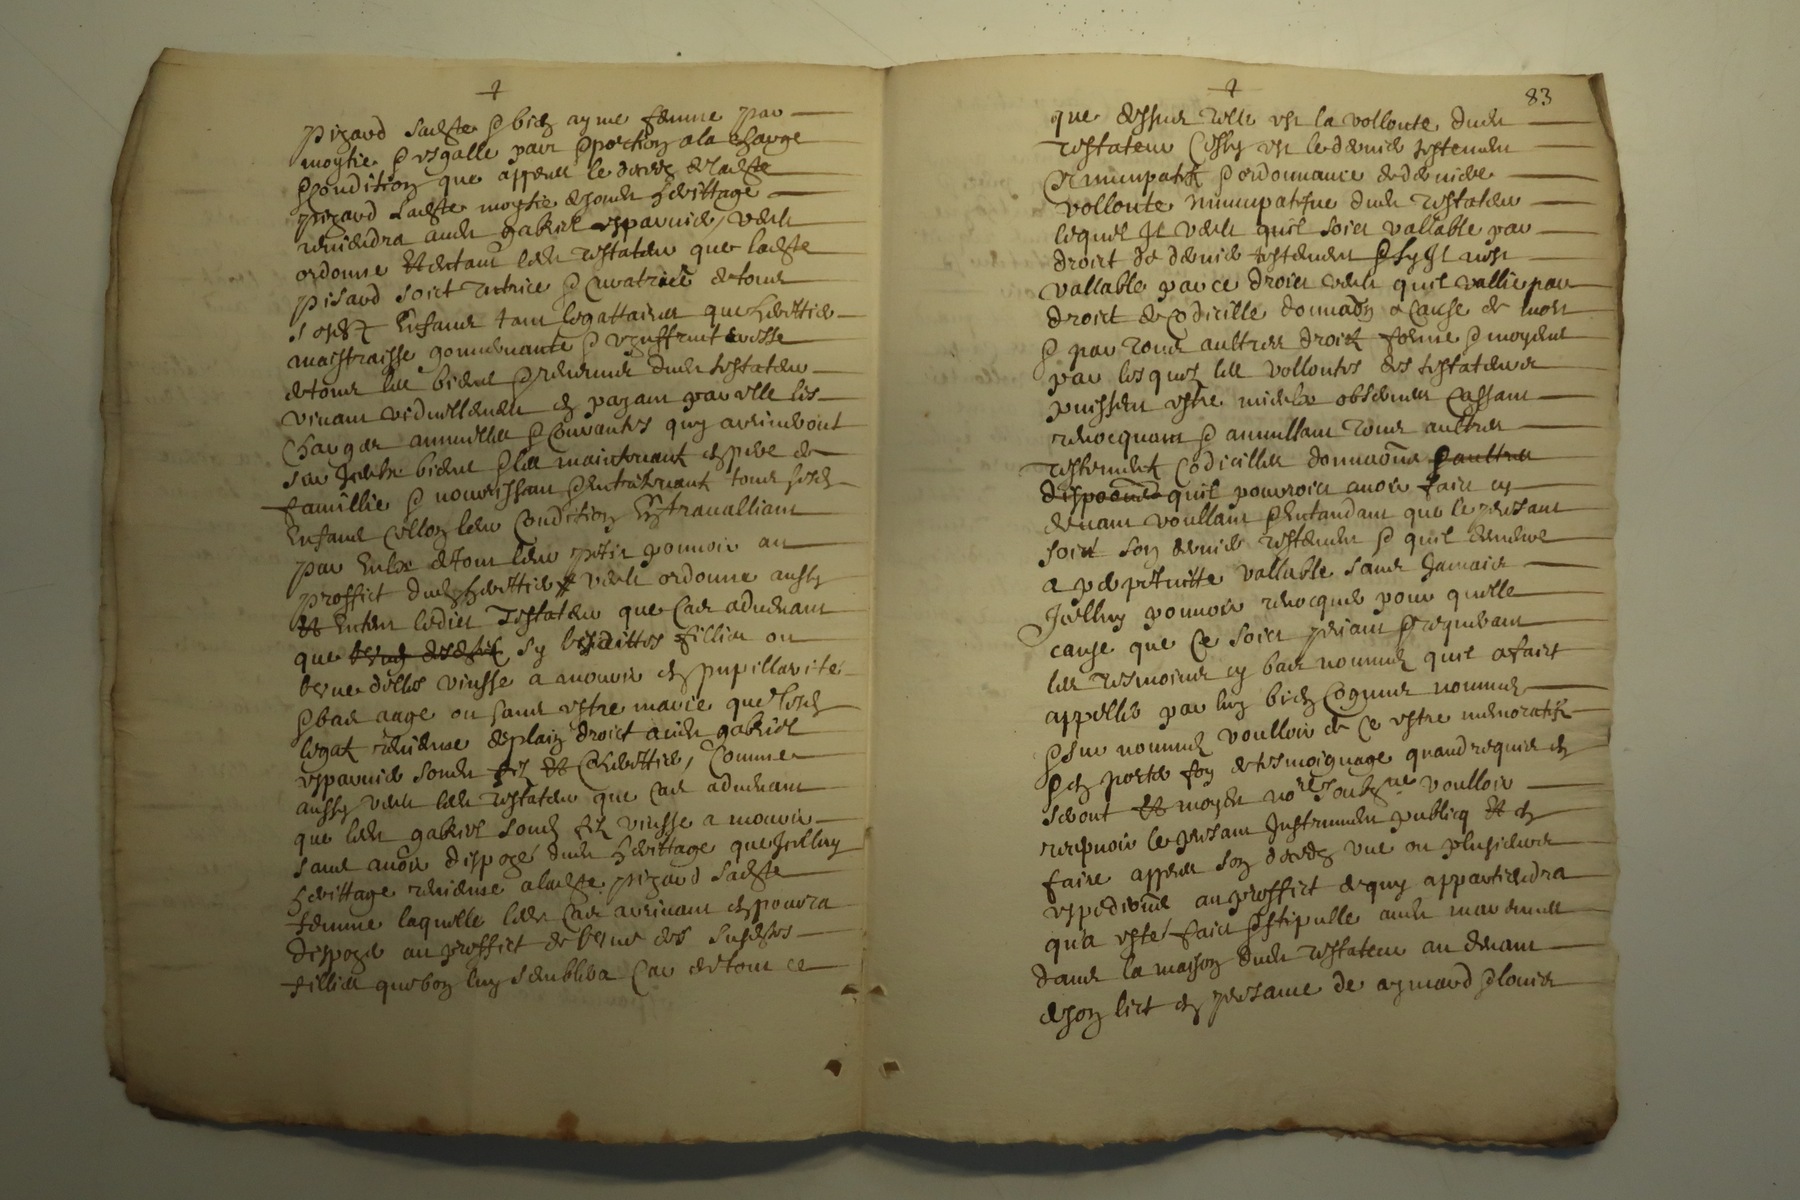 pizard sadte & bien ayme femme par
moytie & esgalle part & portion a la charge
& condition que appres le deces de ladte
pizard ladte moytie de son heritage
reviendra audit gabriel esparnier, veult
ordonne Et entant ledit testateur que ladte
pisard soict tutrice & curatrice de tous
enfans tant legattaires que heritier
maistraisse gouvernante & usuffruict
de tous les biens & revenus dudit testateur
vivant viduellement en payant par elle les
Charges annuelles & courantes quy arriveront
sur biens & les maintenant en pere de
famillie & nourrissant & entretenant tous
Enfans sellon leur Condition En travalliant
par Eulx de tout leur petit pouvoir au
proffict dudit heritier veult ordonne aussy
Et Entent ledict Testateur que Cas advenant
que sy lesdittes fillies ou
l'une d'elles vinsse a mourir en pupillarite
& bas aage ou sans estre marie que
legat revienne de plain droict audit gabriel
esparnier sondit filz Et heritier, Comme
aussy veult ledit testateur que Cas advenant
que ledit gabriel filz vinsse a mourir
sans avoir dispozé dudit heritage que Icelluy
heritage revienne a ladte pizard sadte
femme laquelle ledit Cas arrivant en pourra
dispozer au proffict de l'une des susdtes
fillies que bon luy semblera Car de tout ce
83
que dessus telle est la vollonte dudit
testateur Cessy est le dernier testement
Nuncupatif & ordonnance de derniere
vollonte nuncupatifve dudit testateur
lequel Il veult quil soict vallable par
droict de dernier testement & sy Il n'est
vallable par ce droict veult quil vallie par
droict de Codicille donnaon a Cause de mort
& par tous aultres droict forme & moyens
par lesquelz les vollontes des testateurs
puissent estre mieulx observees Cassant
revocquant & annullant tous aultres
testement Codicilles donnaons & aultres
dispoons quil pourroict avoir faict cy
devant voullant & Entandant que le presant
soict son dernier testement & quil demeure
a perpetuitte vallable sans Jamais
Icelluy pouvoir revocquer pour quelle
cause que Ce soict priant & requerant
les tesmoins cy bas nommes quil a faict
appelles par luy bien Cogneus nommes
& sur nommes voulloir de Ce estre memoratifz
& en porter foy & tesmoignage quand requis en
seront Et moy dit nore soubzne voulloir
recepvoir le presant Instrument publicq Et en
faire appres son deces une ou plusieurs
expedions au proffict de quy appartiendra
qu'a esté faict & stipulle audit
dans la maison dudit testateur au devant
de son lict en presance de aymard & louis